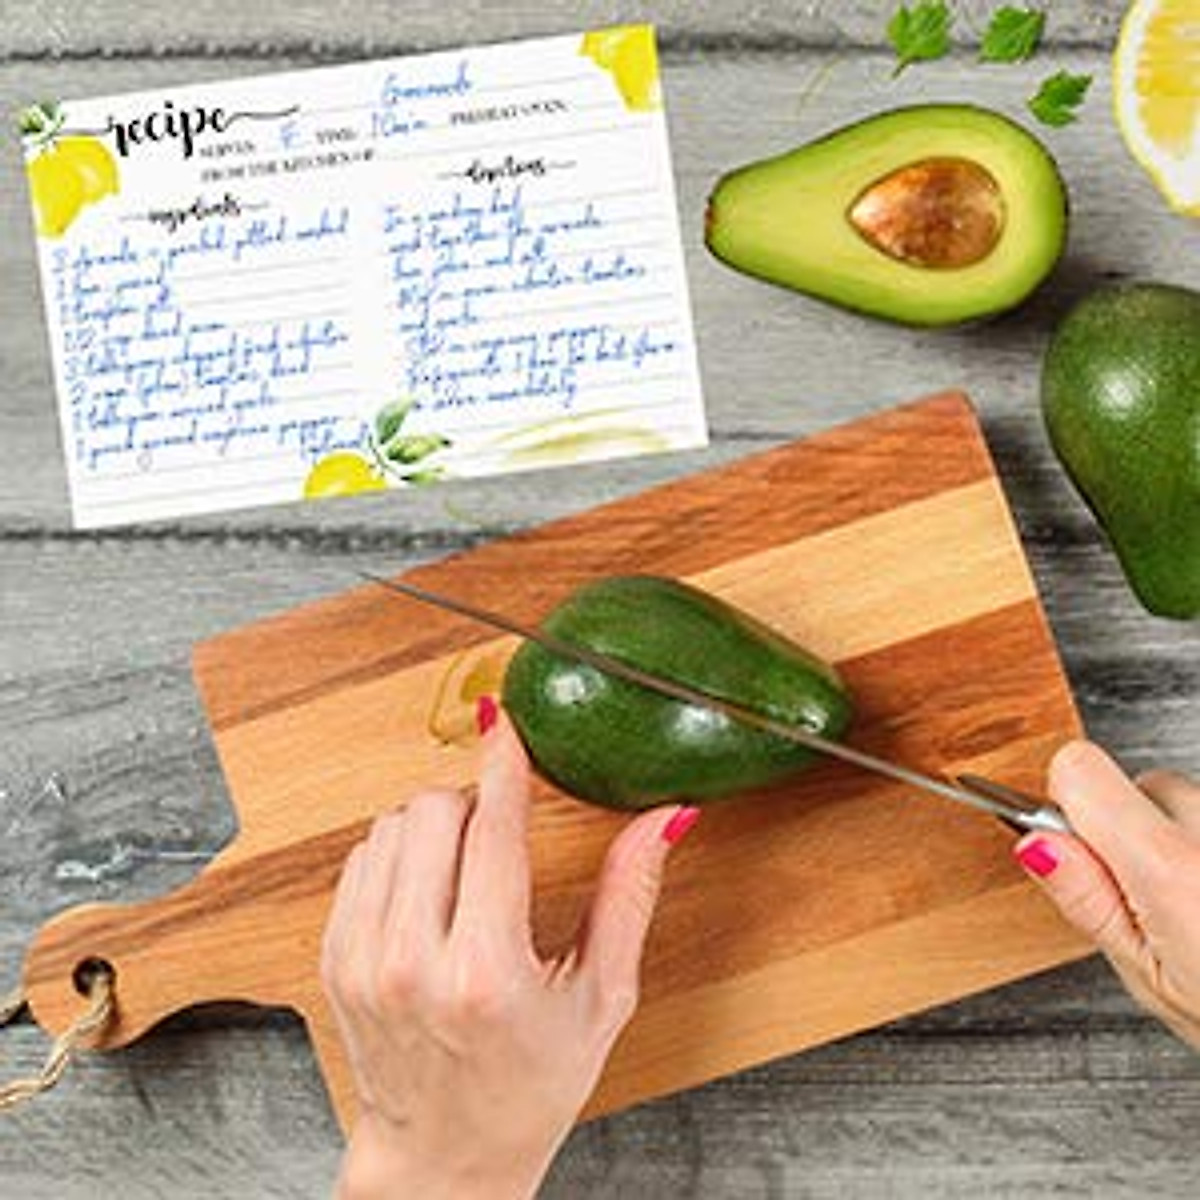 Guacamole
recipe
SERVES: TIME: 10min PREHEAT OVEN:
FROM THE KITCHEN OF
ingredients
directions
3 Avocados - peeled, pitted, mashed
1 lime, juiced
1 teaspoon salt
1/2 cup diced onion
3 tablespoons chopped fresh cilantro
2 roma (plum) tomatoes, diced
1 teaspoon minced garlic
1 pinch ground cayenne pepper
(optional)
In a medium bowl,
mash together the avocados,
lime juice and salt.
Mix in onion, cilantro, tomatoes
and garlic.
Stir in cayenne pepper.
Refrigerate 1 hour for best flavor
or serve immediately